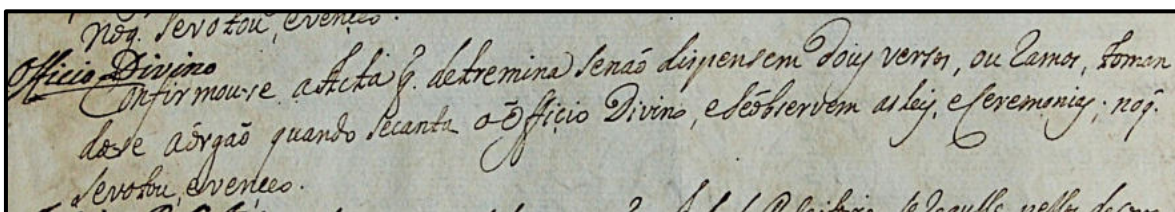 noq. sevotou, evenceo.
Officio Divino
Confirmouse aActa q. detremina senaõ dispensem douy versos, ou Ramos, toman
dose aórgaõ quando secanta oOfficio Divino, eseobservem asleis, eceremonias; noq.
sevotou, evenceo.